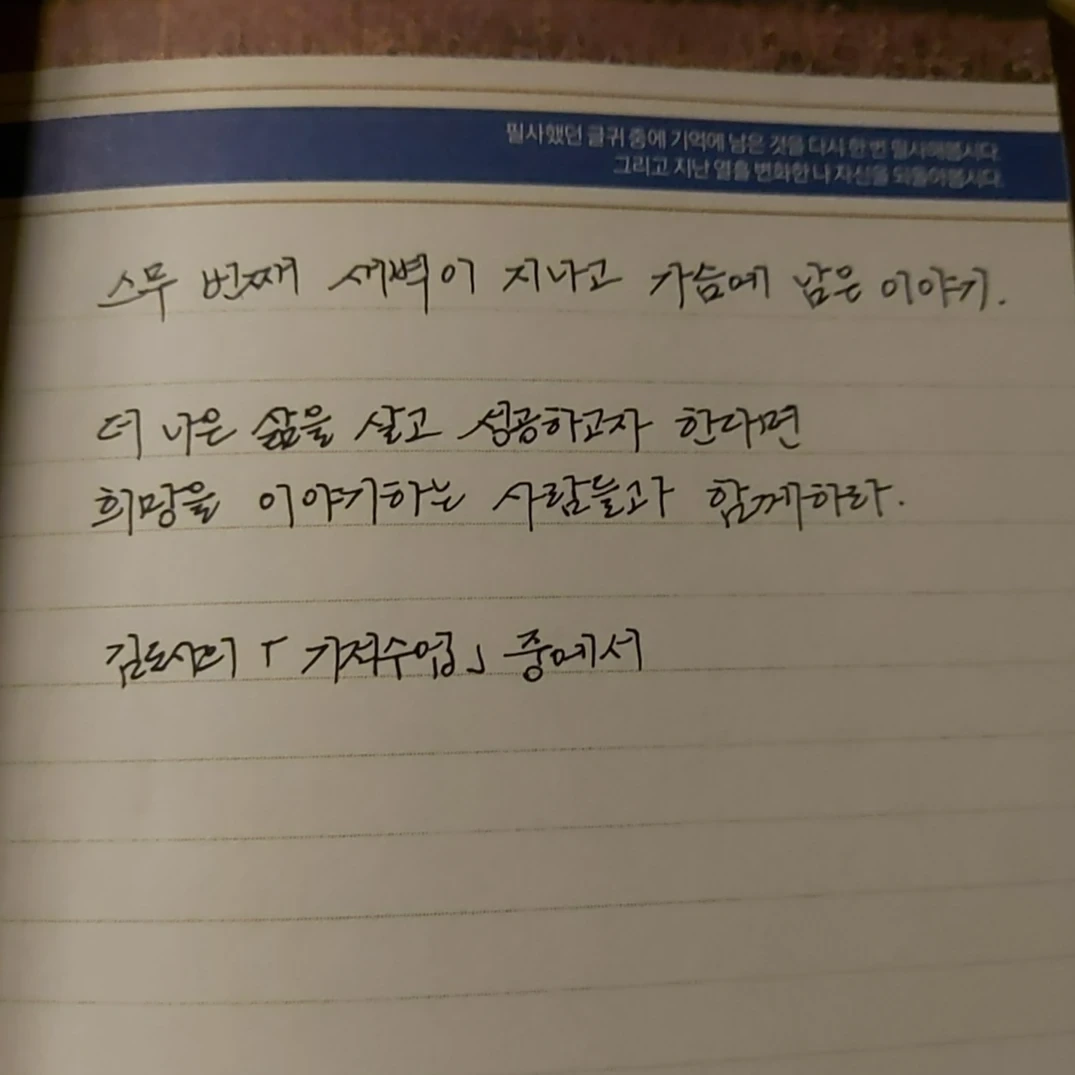 필사했던 글귀 중에 기억에 남은 것을 다시 한 번 필사해봅시다.
그리고 지난 열흘 변화한 나 자신을 되돌아봅시다.
스무 번째 새벽이 지나고 가슴에 남은 이야기.
더 나은 삶을 살고 성공하고자 한다면
희망을 이야기하는 사람들과 함께하라.
「기적수업」 중에서